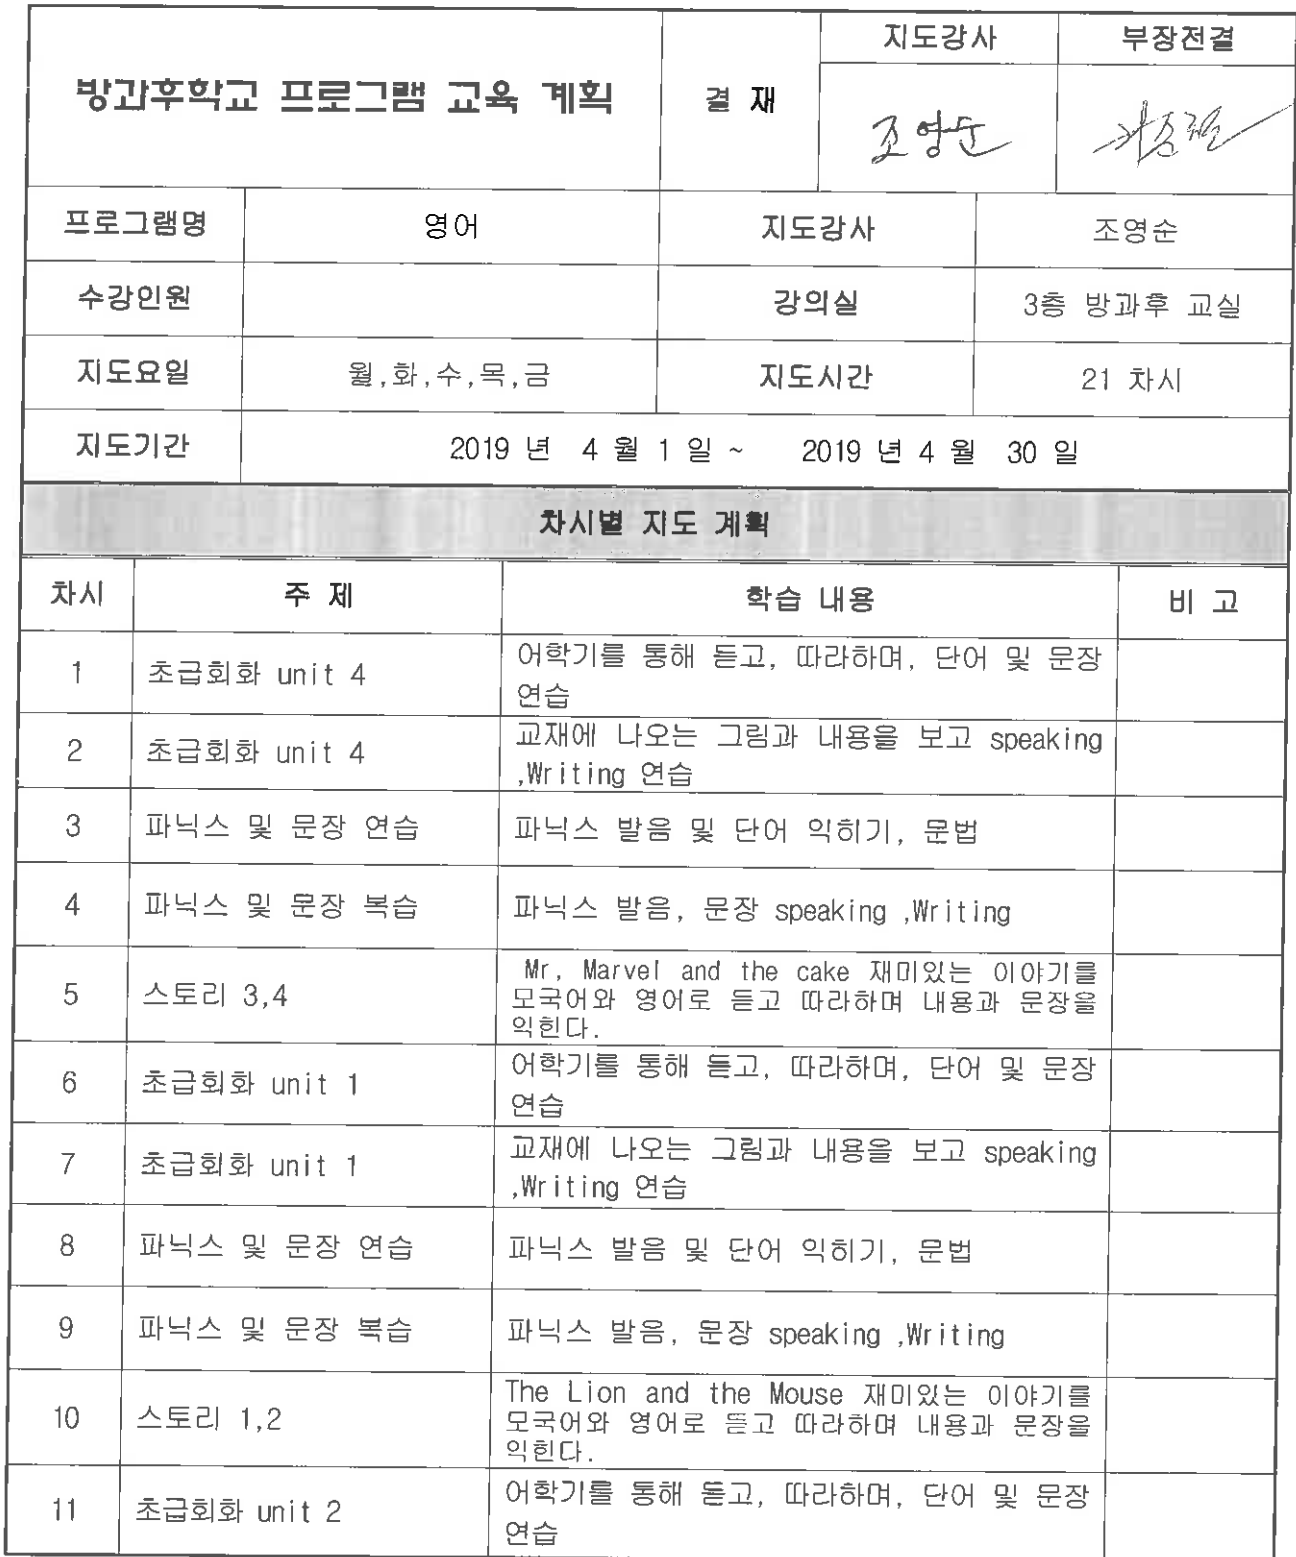 지도강사 부장전결
방과후학교 프로그램 교육 계획 결 재
조영순
프로그램명 영어 지도강사 조영순
수강인원 강의실 3층 방과후 교실
지도요일 월,화,수,목,금 지도시간 21 차시
지도기간 2019 년 4 월 1 일 ~ 2019 년 4 월 30 일
차시별 지도 계획
차시 주 제 학습 내용 비 고
1 초급회화 unit 4 어학기를 통해 듣고, 따라하며, 단어 및 문장
연습
2 초급회화 unit 4 교재에 나오는 그림과 내용을 보고 speaking
,Writing 연습
3 파닉스 및 문장 연습 파닉스 발음 및 단어 익히기, 문법
4 파닉스 및 문장 복습 파닉스 발음, 문장 speaking ,Writing
5 스토리 3,4 Mr, Marvel and the cake 재미있는 이야기를
모국어와 영어로 듣고 따라하며 내용과 문장을
익힌다.
6 초급회화 unit 1 어학기를 통해 듣고, 따라하며, 단어 및 문장
연습
7 초급회화 unit 1 교재에 나오는 그림과 내용을 보고 speaking
,Writing 연습
8 파닉스 및 문장 연습 파닉스 발음 및 단어 익히기, 문법
9 파닉스 및 문장 복습 파닉스 발음, 문장 speaking ,Writing
10 스토리 1,2 The Lion and the Mouse 재미있는 이야기를
모국어와 영어로 듣고 따라하며 내용과 문장을
익힌다.
11 초급회화 unit 2 어학기를 통해 듣고, 따라하며, 단어 및 문장
연습